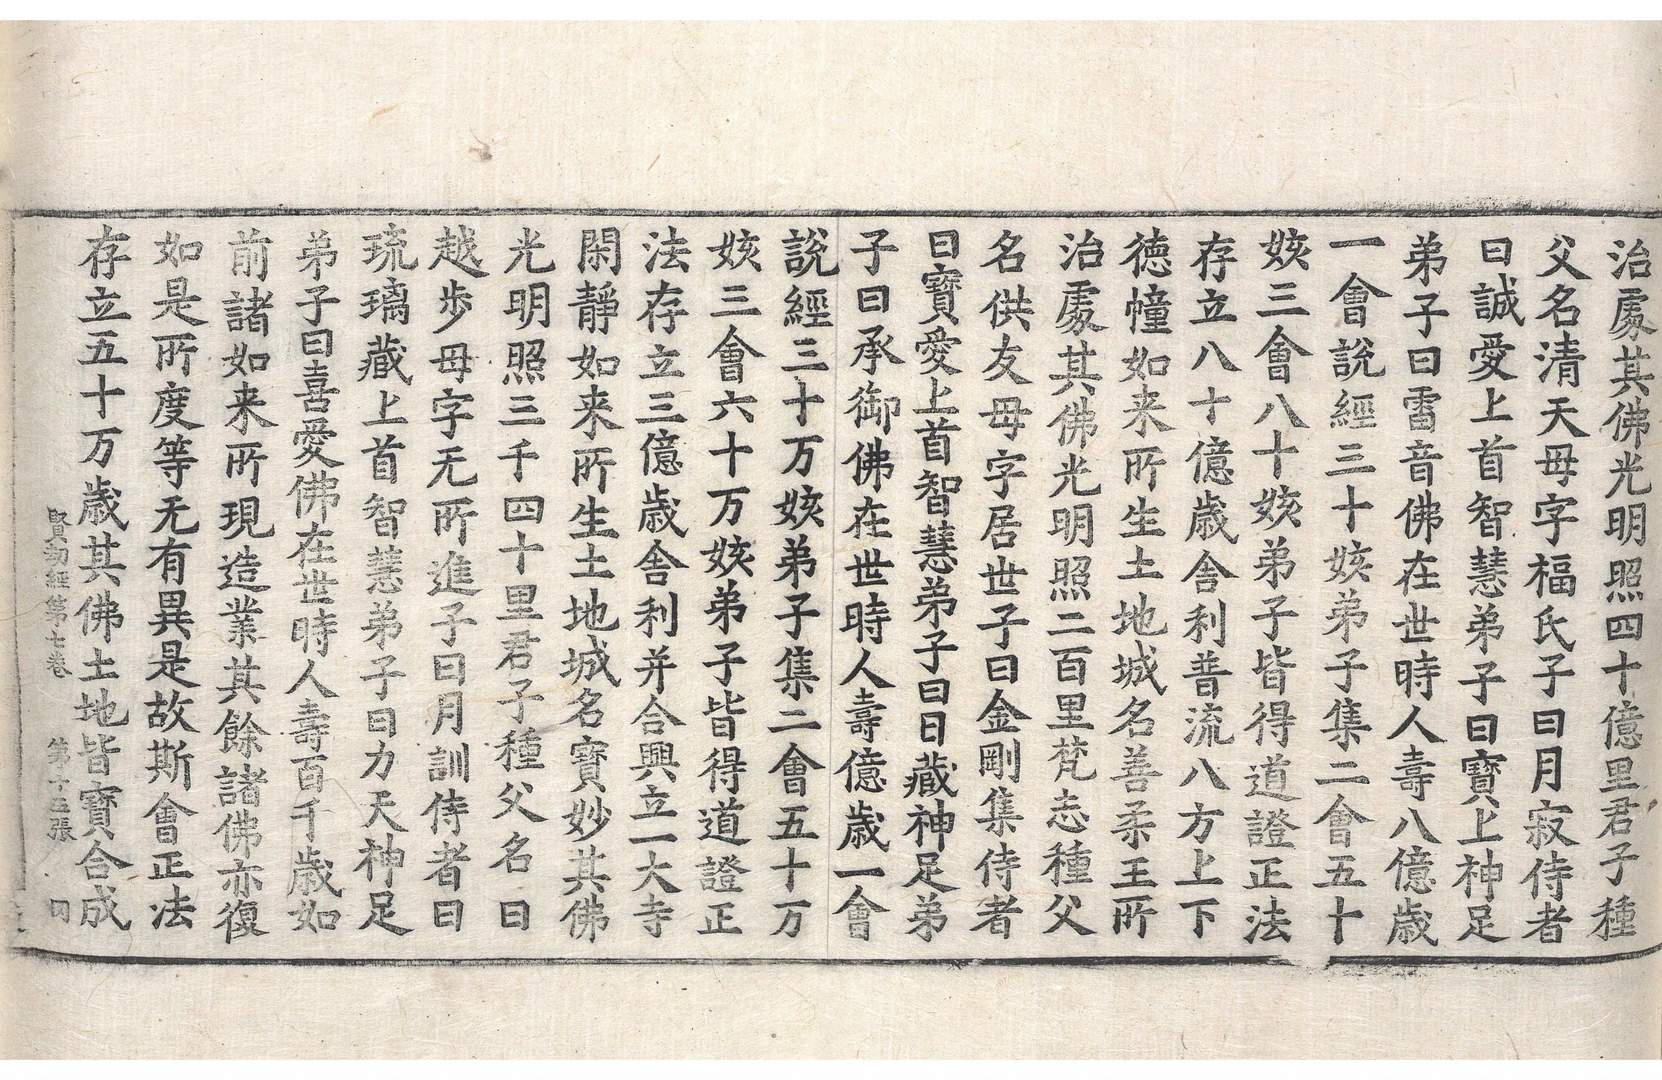 治處其佛光明照四十億里君子種
父名清天母字福氏子曰月寂侍者
曰誠愛上首智慧弟子曰寶上神足
弟子曰雷音佛在世時人壽八億歲
一會說經三十姟弟子集二會五十
姟三會八十姟弟子皆得道證正法
存立八十億歲舍利普流八方上下
德幢如来所生土地城名善柔王所
治處其佛光明照二百里梵志種父
名供友母字居世子曰金剛集侍者
曰寶愛上首智慧弟子曰日藏神足弟
子曰承御佛在世時人壽億歲一會
說經三十万姟弟子集二會五十万
姟三會六十万姟弟子皆得道證正
法存立三億歲舍利并合興立一大寺
閑靜如来所生土地城名寶妙其佛
光明照三千四十里君子種父名曰
越步母字无所進子曰月訓侍者曰
琉璃藏上首智慧弟子曰力天神足
弟子曰喜愛佛在世時人壽百千歲如
前諸如来所現造業其餘諸佛亦復
如是所度等无有異是故斯會正法
存立五十万歲其佛土地皆寶合成
賢劫經第七卷 第十五張